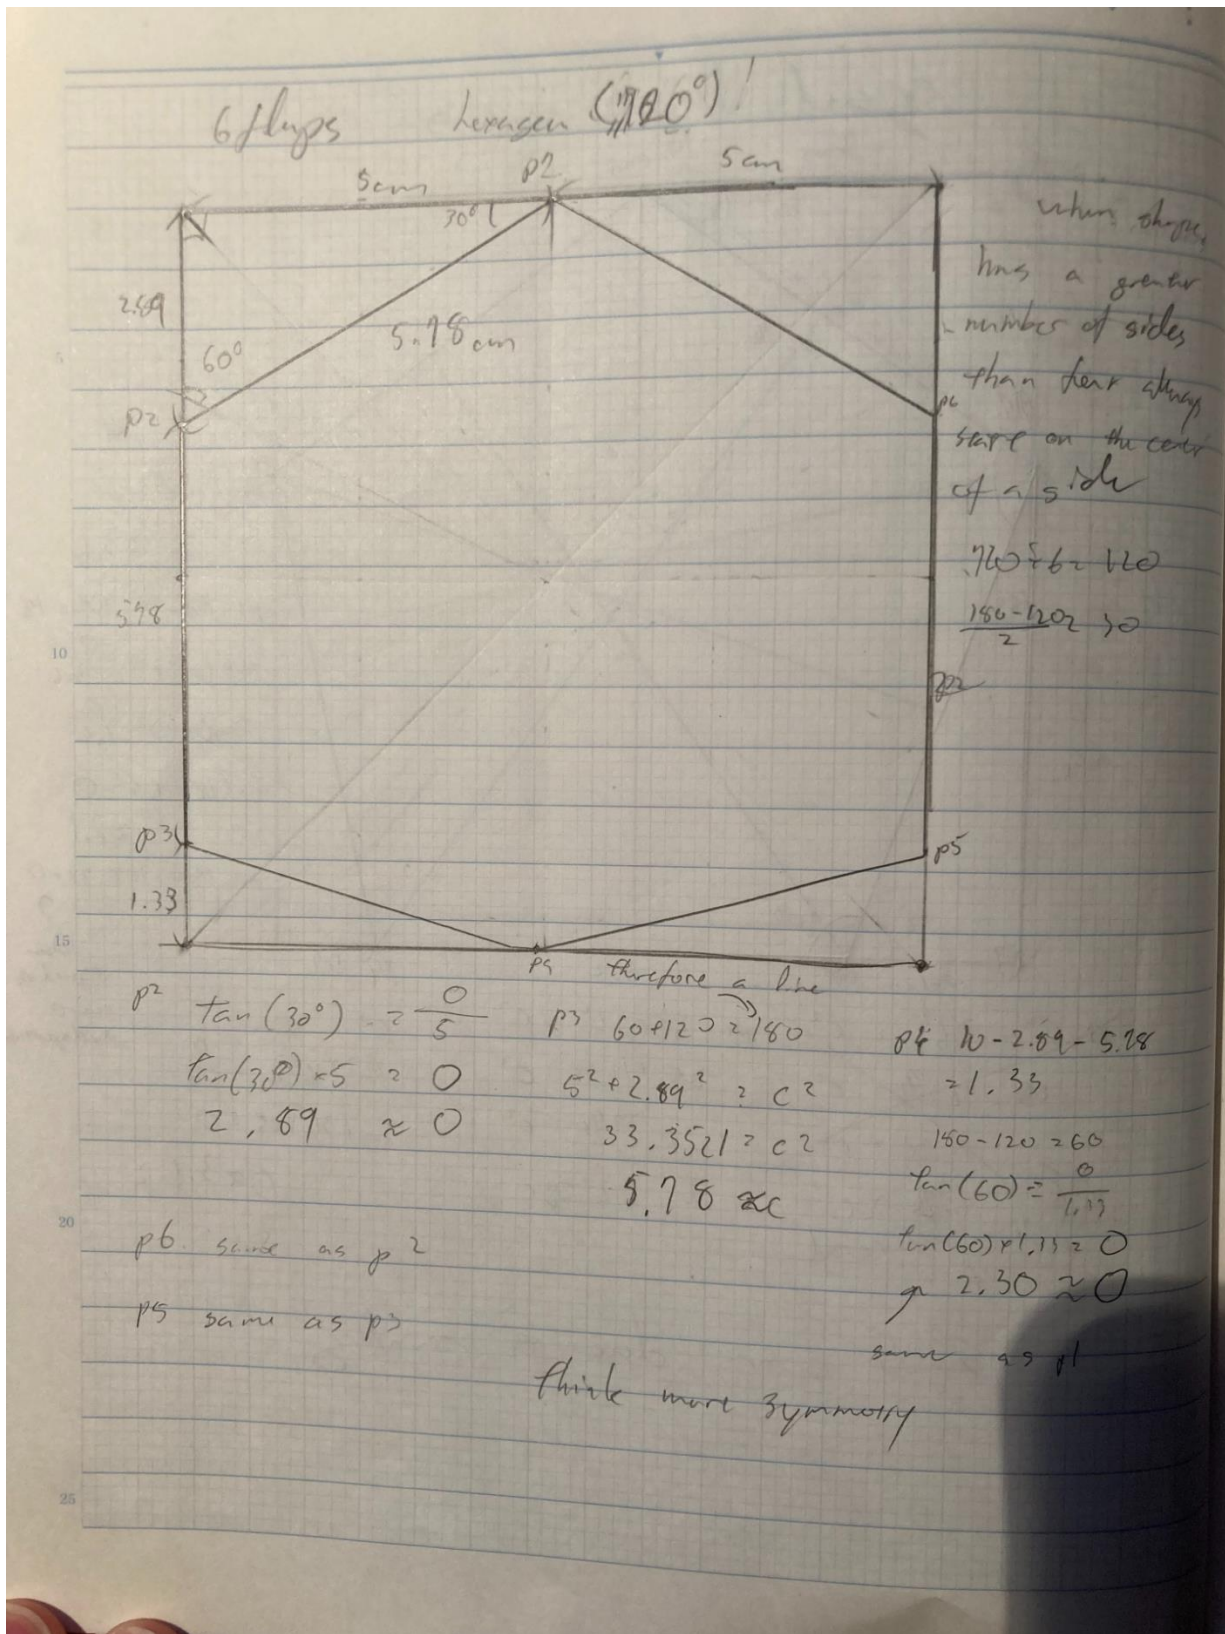 6 flaps hexagon (720°)!
5cm p2 5cm
30°
2.89
60°
5.78 cm
p2
p6
when shape
has a greater
number of sides
than four always
start on the center
of a side
720÷6= 120
180-120 = 30
2
578
10
p3
p5
1.33
15
p4 therefore a line
p2 tan(30°) = O
5
tan(30°)×5 = O
2.89 ≈ O
p3 60+120=180
5²+2.89² = c²
33.3521 = c²
5.78 ≈c
p4 10-2.89-5.78
=1.33
180-120=60
tan(60) = O
1.33
tan(60)×1.33 = O
2.30 ≈ O
same as p1
20
p6 same as p2
p5 same as p3
think more symmetry
25